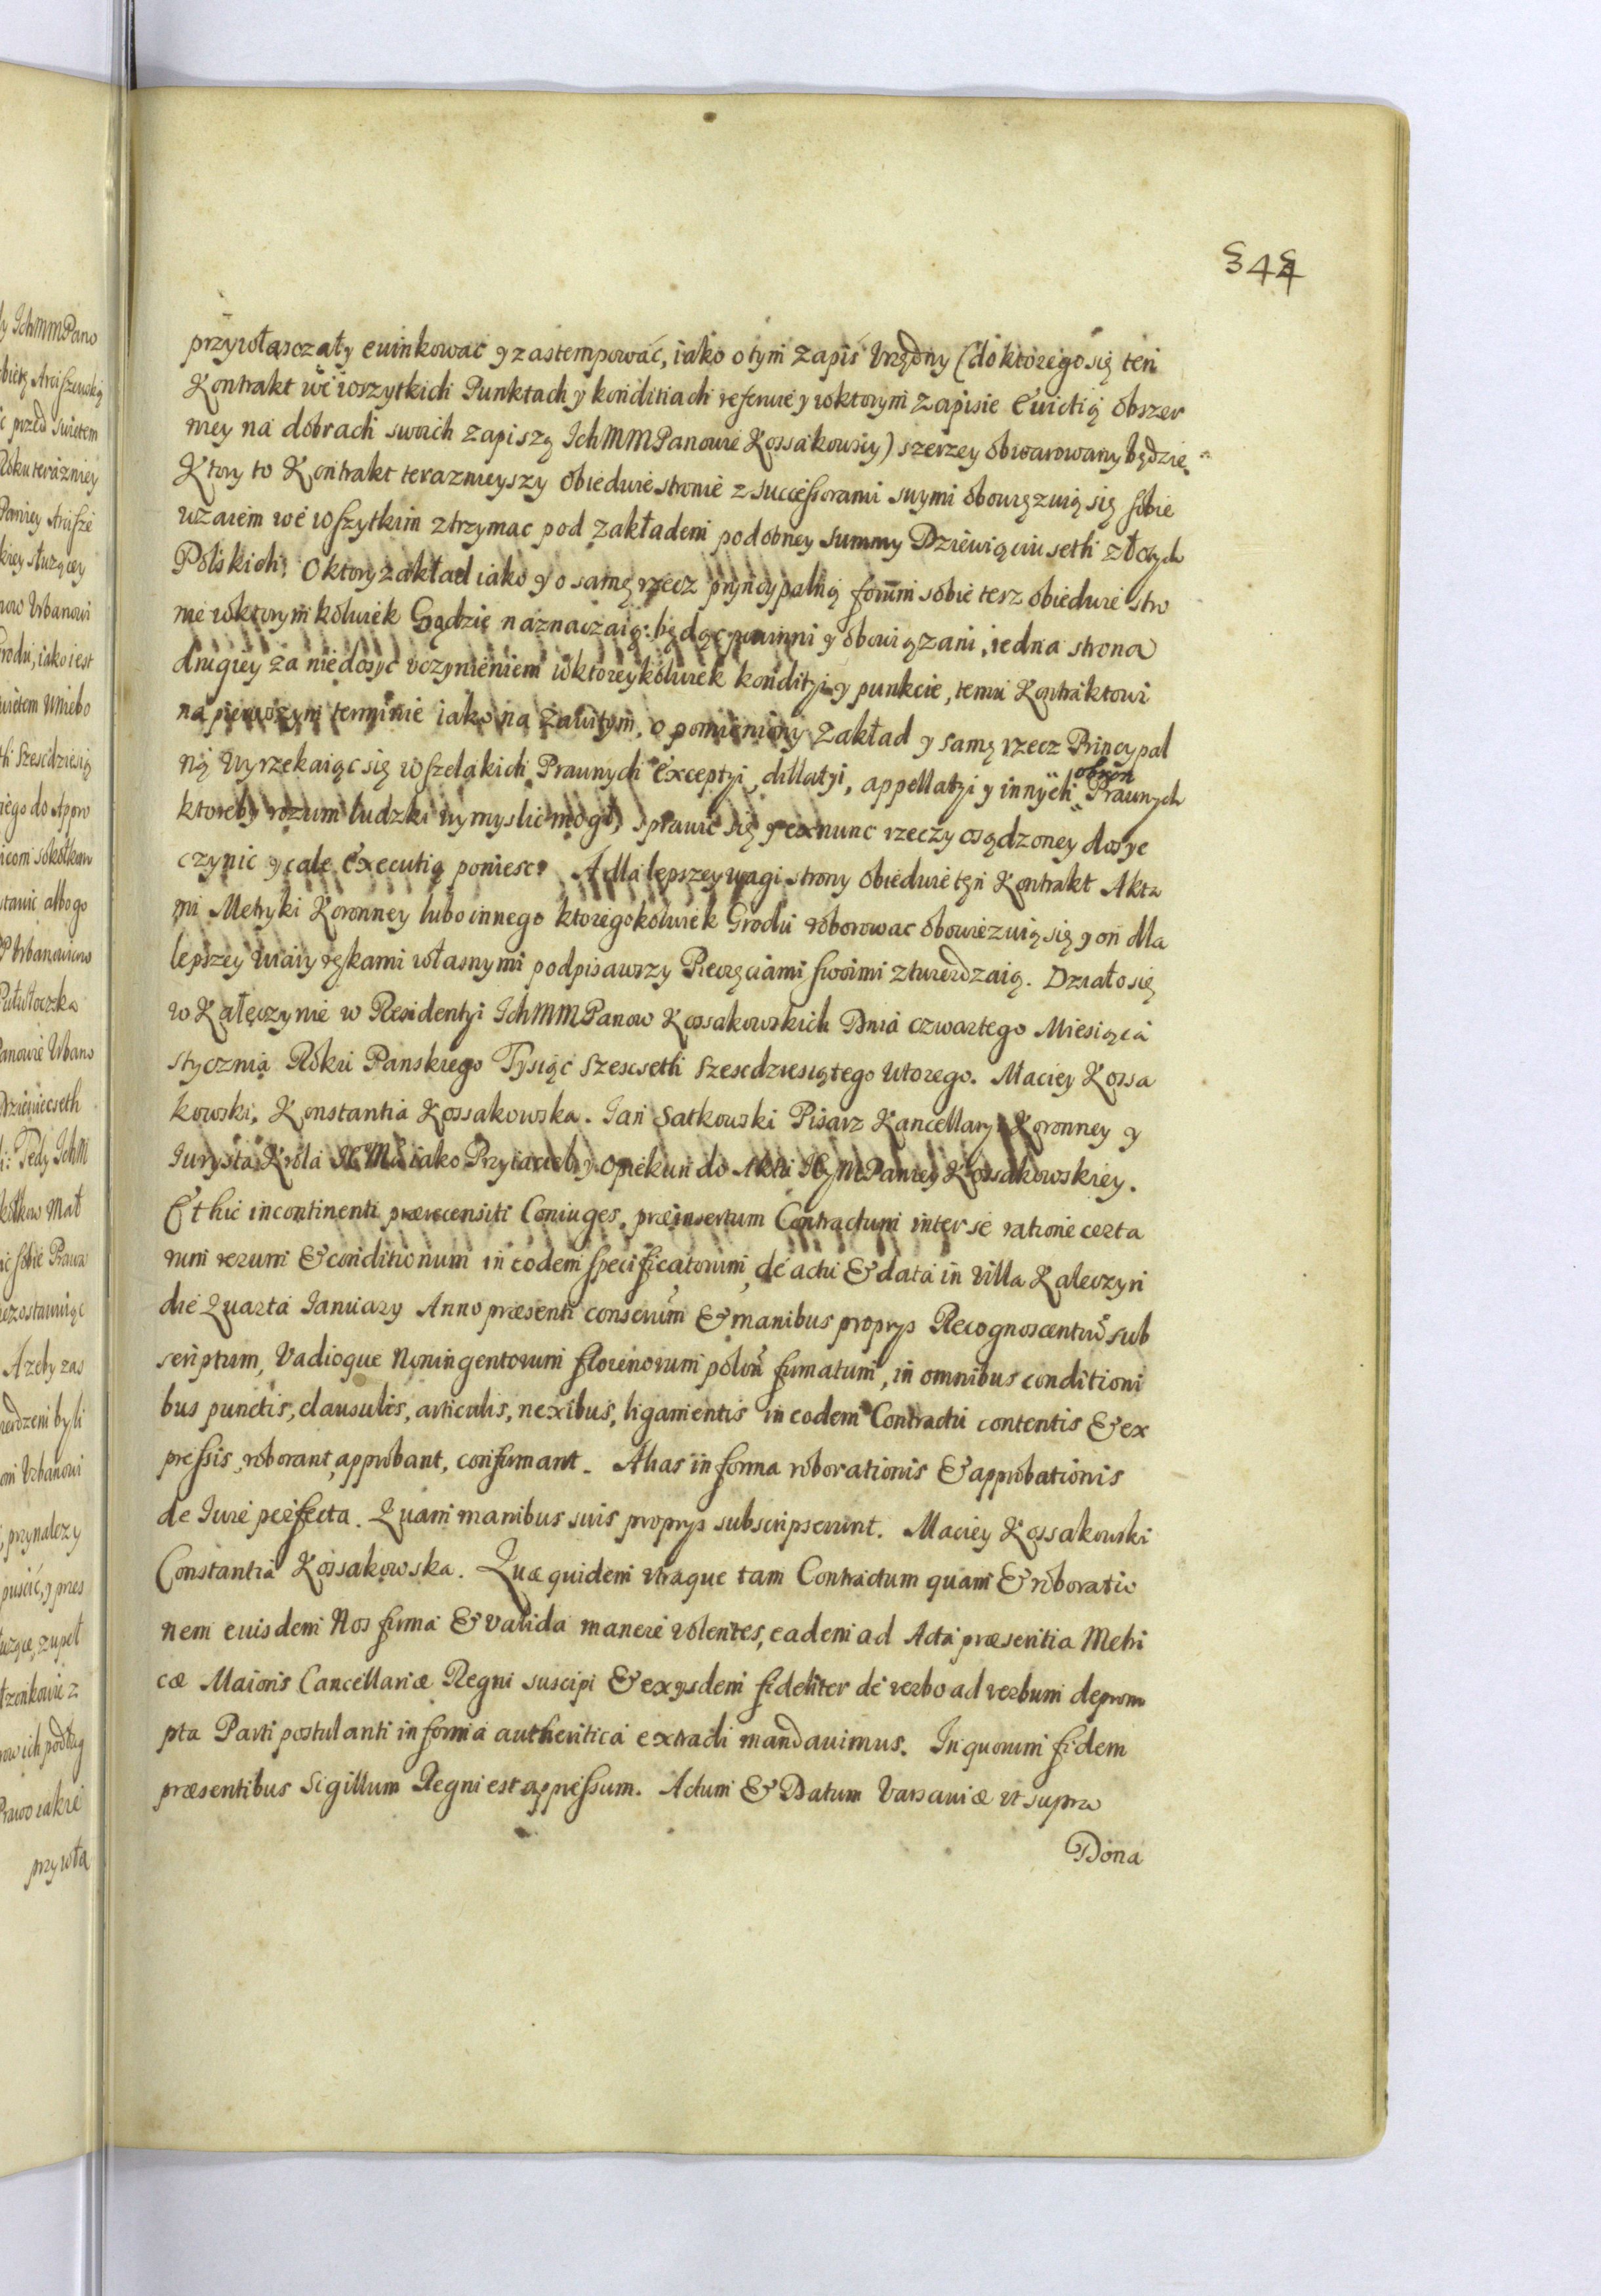 344
przywłaszczały ewinkować y zastempować, iako o tym zapis Vrzędowny (do ktorego się ten
Kontrakt we wszytkich Punktach y konditiach referuie y w ktorym zapisie Ewictią obszer
niey na dobrach swoich zapiszą IchMMPanowie Kossakowscy) szerzey obwarowany będzie.
Ktory to Kontrakt teraznieyszy obiedwie stronie z successorami swymi obowięzuią się sobie
wzaiem we wszytkim ztrzymac pod zakładem podobney summy Dziewiąciuseth złotych
Polskich: O ktory zakład iako y o samę rzecz pryncypalną forum sobie tesz obiedwie stro
nie w ktorymkolwiek Grodzie naznaczaią: będąc powinni y obowiązani, iedna strona
drugiey za niedosyc vczynieniem w ktoreykolwiek konditiy y punkcie, temu Kontraktowi
na pierwszym terminie iako na zawitym, o pomieniony zakład y samę rzecz Principal
ną Wyrzekaiąc się wszelakich Prawnych Exceptyi, dillatyi, appellatyi y innych obron Prawnych
ktoreby rozum ludzki wymyslic mogł, sprawic się y ex nunc rzeczy osądzoney dosyc
czynic y całe Executią poniesc. A dla lepszey wagi strony obiedwie ten Kontrakt Akta
mi Metryki Koronney lubo innego ktoregokolwiek Grodu roborowac obowiezuią się y on dla
lepszey wiary rękami własnymi podpisawszy Pieczęciami swoimi ztwierdzaią. Działo się
w Kałęczynie w Residentyi IchMMPanow Kossakowskich Dnia czwartego Miesiąca
stycznia Roku Panskiego Tysiąc szescseth szescdziesiątego wtorego. Maciey Kossa
kowski, Konstantia Kossakowska. Jan Satkowski Pisarz Kancellaryi Koronney y
Jurysta Krola JeoMci iako Przyiaciel y Opiekun do Aktu JeyMPaniey Kossakowskiey.
Et hic incontinenti prærecensiti Coniuges, præinsertum Contractum inter se ratione certa
rum rerum & conditionum in eodem specificatorum, de actu & data in Villa Kaleczyn
die Quarta January Anno præsenti conscrum & manibus proprys Recognoscentium sub
scriptum, Vadioque Noningentorum florenorum polon firmatum, in omnibus conditioni
bus punctis, clausulis, articulis, nexibus, ligamentis in eodem Contractu contentis & ex
pressis, roborant, approbant, confirmant. Alias in forma roborationis & approbationis
de Iure perfecta. Quam manibus suis proprys subscripserunt. Maciey Kossakowski
Constantia Kossakowska. Quæ quidem vtraque tam Contractum quam & roboratio
nem euisdem Nos firma & valida manere volentes, eadem ad Acta præsentia Metri
cæ Maioris Cancellariæ Regni suscipi & ex ysdem fideliter de verbo ad verbum deprom
pta Parti postulanti in forma authentica extradi mandauimus. In quorum fidem
præsentibus Sigillum Regni est appressum. Actum & Datum Varsauiæ vt supra
Dona